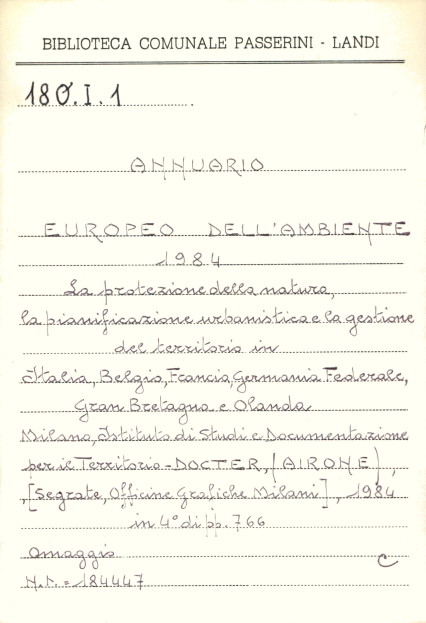 BIBLIOTECA COMUNALE PASSERINI - LANDI
180.I.1
ANNUARIO
EUROPEO DELL'AMBIENTE
1984
La protezione della natura,
la pianificazione urbanistica e la gestione
del territorio in
Italia, Belgio, Francia, Germania Federale,
Gran Bretagna e Olanda
Milano, Istituto di Studi e Documentazione
per il Territorio - DOCTER, (AIRONE),
[Segrate, Officine Grafiche Milani], 1984
in 4° di pp. 766
Omaggio C
N.I. = 184447